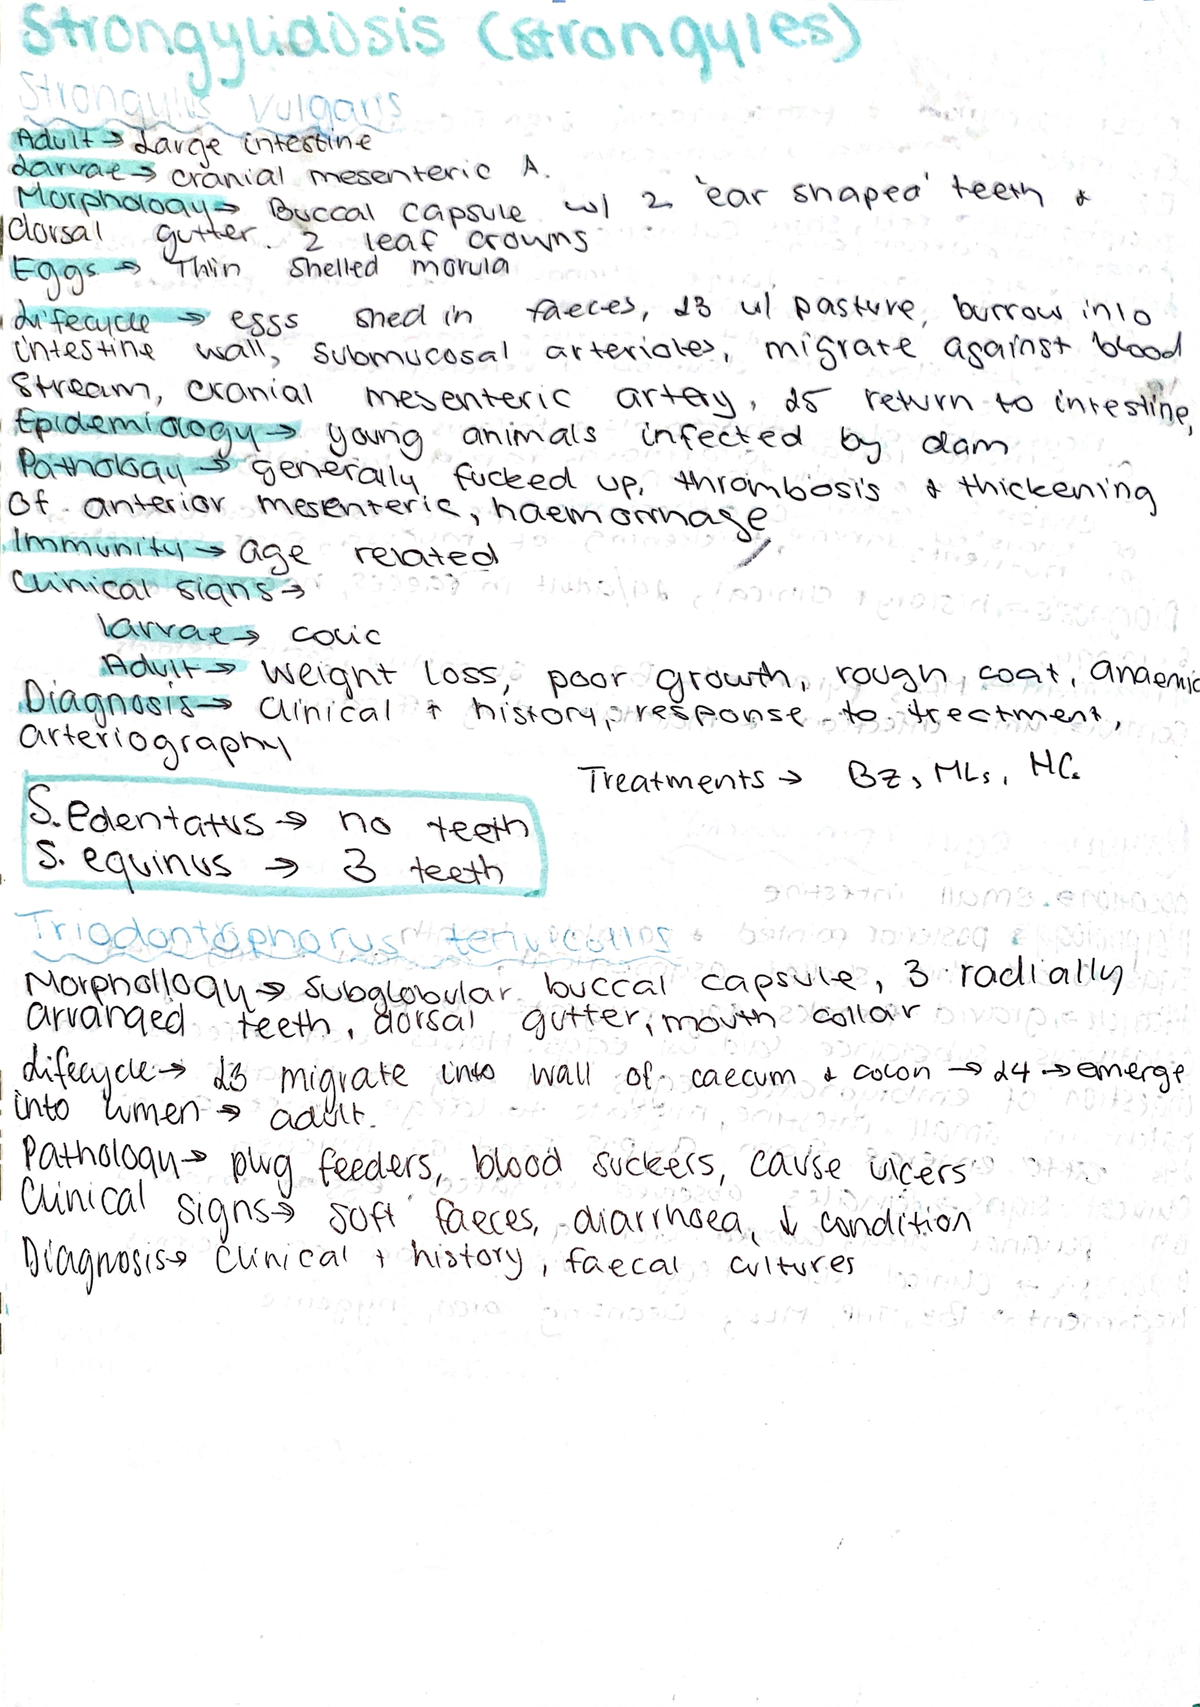 Strongylidosis (strongyles)
Strongylus vulgaris
Adult → Large intestine
Larvae → cranial mesenteric A.
Morphology → Buccal capsule w/ 2 'ear shaped' teeth &
dorsal gutter. 2 leaf crowns
Eggs → Thin shelled morula
Lifecycle → eggs shed in faeces, L3 w/ pasture, burrow into
intestine wall, submucosal arterioles, migrate against blood
stream, cranial mesenteric artery, L5 return to intestine,
Epidemiology → young animals infected by dam
Pathology → generally fucked up, thrombosis & thickening
of anterior mesenteric, haemorrhage
Immunity → age related
Clinical signs →
larvae → colic
Adult → Weight loss, poor growth, rough coat, anaemic
Diagnosis → Clinical + history, response to treatment,
arteriography
Treatments → Bz, MLs, HC.
S. Edentatus → no teeth
S. equinus → 3 teeth
Triodontophorus tenuicollis
Morphollogy → subglobular buccal capsule, 3 radially
arranged teeth, dorsal gutter, mouth collar
Lifecycle → L3 migrate into wall of caecum & colon → L4 → emerge
into lumen → adult.
Pathology → plug feeders, blood suckers, cause ulcers
Clinical signs → soft faeces, diarrhoea, ↓ condition
Diagnosis → Clinical + history, faecal cultures